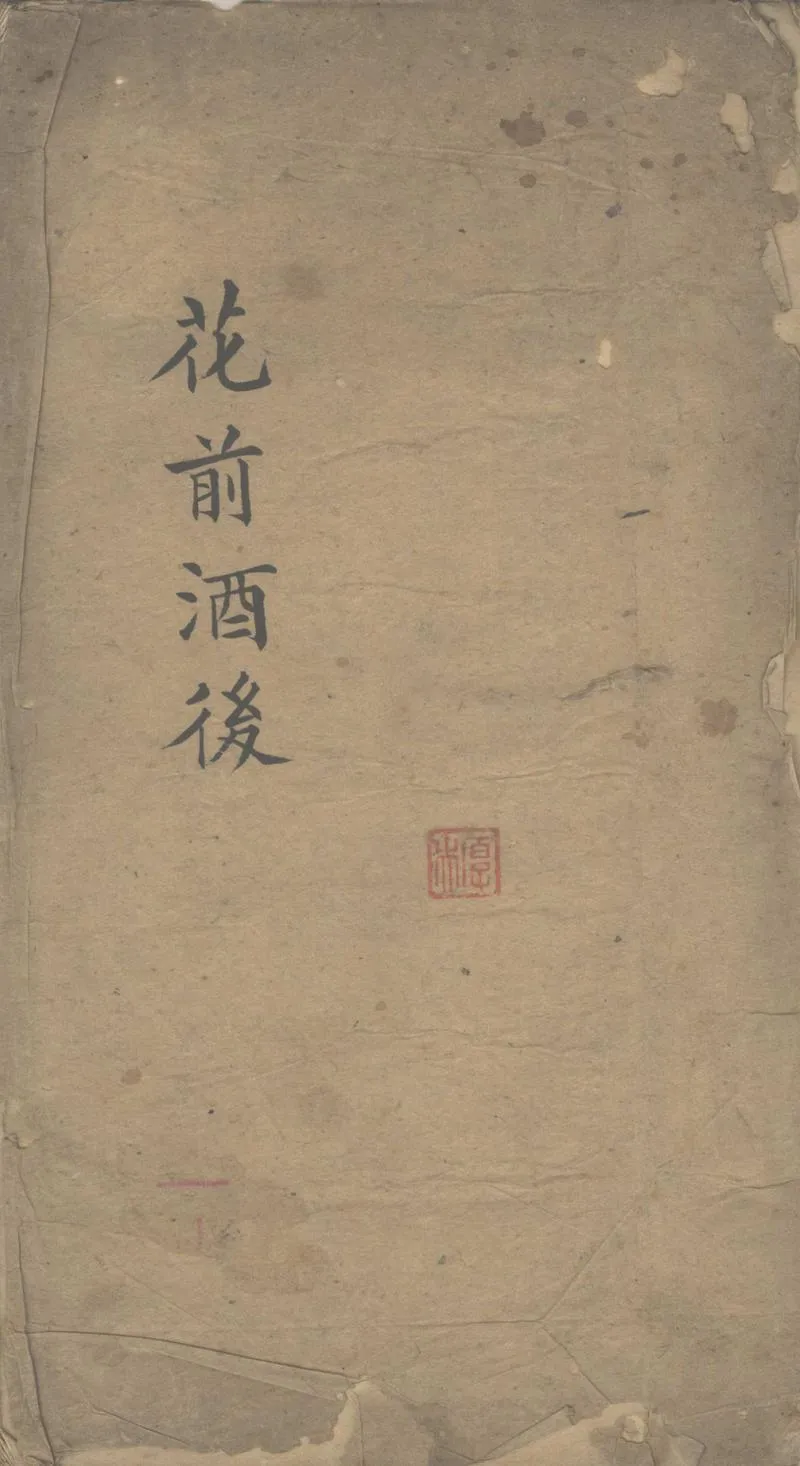 花前酒後